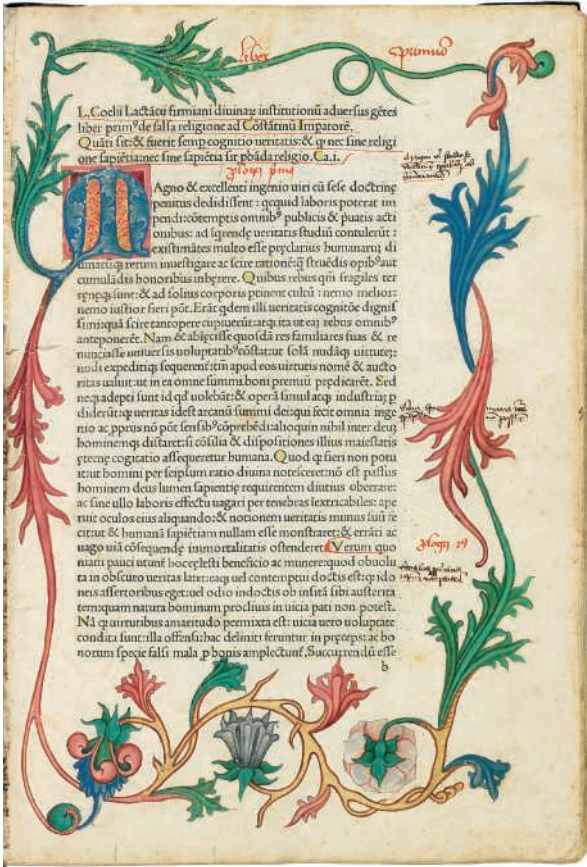 liber primus
L. Coelii Lactātii firmiani diuinaꝝ institutionū aduersus gētes
liber primꝰ de falsa religione ad Cōstātinū Impatorē.
Quāti sit: & fuerit semp cognitio ueritatis: & ꝙ nec sine religi
one sapiētia: nec sine sapiētia sit pbāda religio. Ca.1.
MAgno & excellenti ingenio uiri cū sese doctrinę
penitus dedidissent: qcquid laboris poterat im
pendi: cōtemptis omnibꝰ publicis & puatis acti
onibus: ad īqrendę ueritatis studiū contulerūt:
existimātes multo esse pręclarius humanaꝝ di
uinaruꝙ rerum inuestigare ac scire rationē: ꝙ struēdis opibꝰ aut
cumulādis honoribus inhęrere. Quibus rebus qm̄ fragiles ter
renęꝙ sunt: & ad solius corporis ptinent cultū: nemo melior:
nemo iustior fieri pōt. Erāt qdem illi ueritatis cognitiōe dignis
simi: quā scire tantopere cupiuerūt: atꝙ ita ut eaꝫ rebus omnibꝰ
anteponerēt. Nam & abiecisse quosdā res familiares suas & re
nunciasse uniuersis uoluptatibꝰ cōstat: ut solā nudāꝙ uirtuteꝫ:
nudi expeditiꝙ sequerent̄: tm̄ apud eos uirtutis nomē & aucto
ritas ualuit: ut in ea omne summi boni premiū prędicarēt. Sed
neꝙ adepti sunt id qd uolebāt: & operā simul atꝙ industriaꝫ p
diderūt: ꝙ ueritas idest arcanū summi dei: qui fecit omnia inge
nio ac pprus nō pōt sensibꝰ cōprehēdi: alioquin nihil inter deuꝫ
hominemꝙ distaret: si cōsilia & dispositiones illius maiestatis
ęternę cogitatio assequeretur humana. Quod ꝙ fieri non potu
it: ut homini per seipsum ratio diuina notesceret: nō est passus
hominem deus lumen sapientię requirentem diutius oberrare:
ac sine ullo laboris effectu uagari per tenebras īextricabiles: ape
ruit oculos eius aliquando: & notionem ueritatis munus suū fe
cit: ut & humanā sapiētiam nullam esse monstraret: & errāti ac
uago uiā cōsequendę immortalitatis ostenderet. Verum quo
niam pauci utunt̄ hoc cęlesti beneficio ac munere: quod obuolu
ta in obscuro ueritas latet: eaꝙ uel contemptui doctis est: qꝫ ido
neis assertoribus eget: uel odio indoctis ob insitā sibi austerita
tem: quam natura hominum procliuis in uicia pati non potest.
Nā ꝙ uirtutibus amaritudo permixta est: uicia uero uoluptate
condita sunt: illa offensi: hac deliniti feruntur in pręceps: ac bo
norum specie falsi mala p bonis amplectunt̄. Succurrendū esse
b